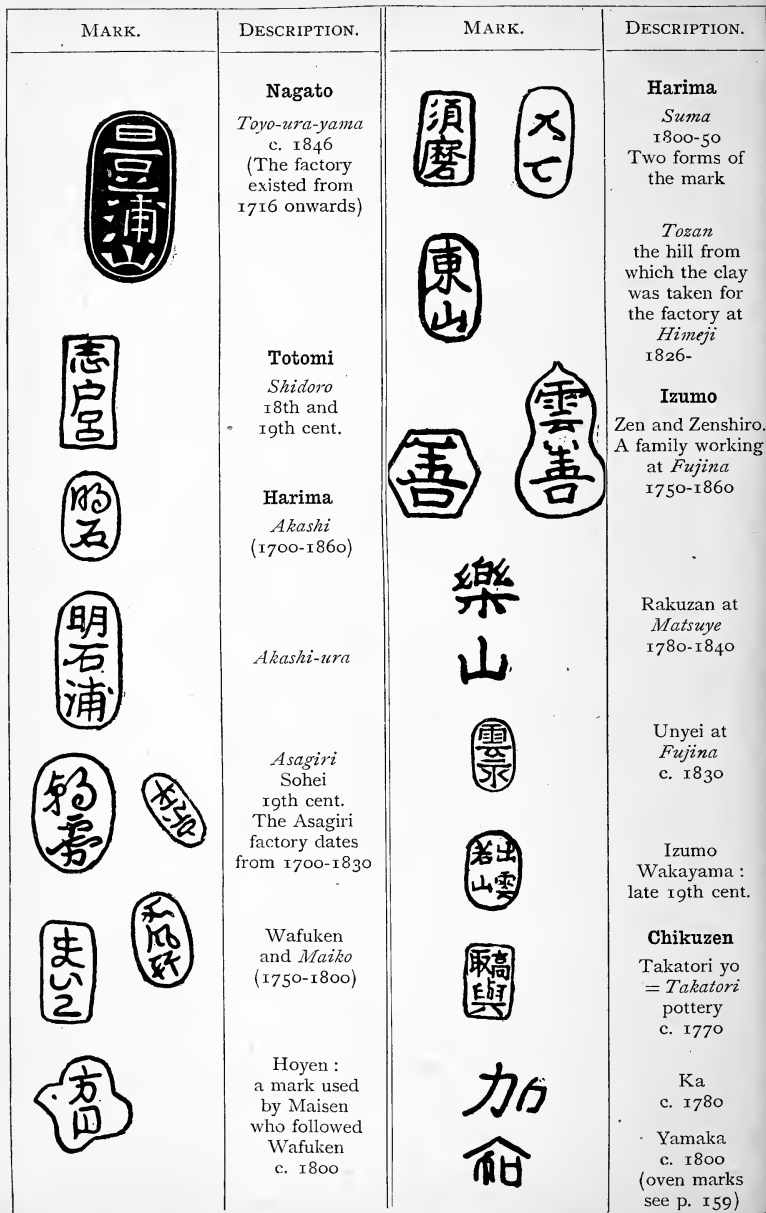 MARK.
DESCRIPTION.
豊浦山
Nagato
Toyo-ura-yama
c. 1846
(The factory
existed from
1716 onwards)
志戸呂
Totomi
Shidoro
18th and
19th cent.
明石
Harima
Akashi
(1700-1860)
明石浦
Akashi-ura
朝霧
Asagiri
Sohei
19th cent.
The Asagiri
factory dates
from 1700-1830
まいこ
和風軒
Wafuken
and Maiko
(1750-1800)
方円
Hoyen :
a mark used
by Maisen
who followed
Wafuken
c. 1800
MARK.
DESCRIPTION.
須磨
Harima
Suma
1800-50
Two forms of
the mark
東山
Tozan
the hill from
which the clay
was taken for
the factory at
Himeji
1826-
善
雲善
Izumo
Zen and Zenshiro.
A family working
at Fujina
1750-1860
樂山
Rakuzan at
Matsuye
1780-1840
雲永
Unyei at
Fujina
c. 1830
出雲
若山
Izumo
Wakayama :
late 19th cent.
高取與
Chikuzen
Takatori yo
= Takatori
pottery
c. 1770
加
Ka
c. 1780
Yamaka
c. 1800
(oven marks
see p. 159)